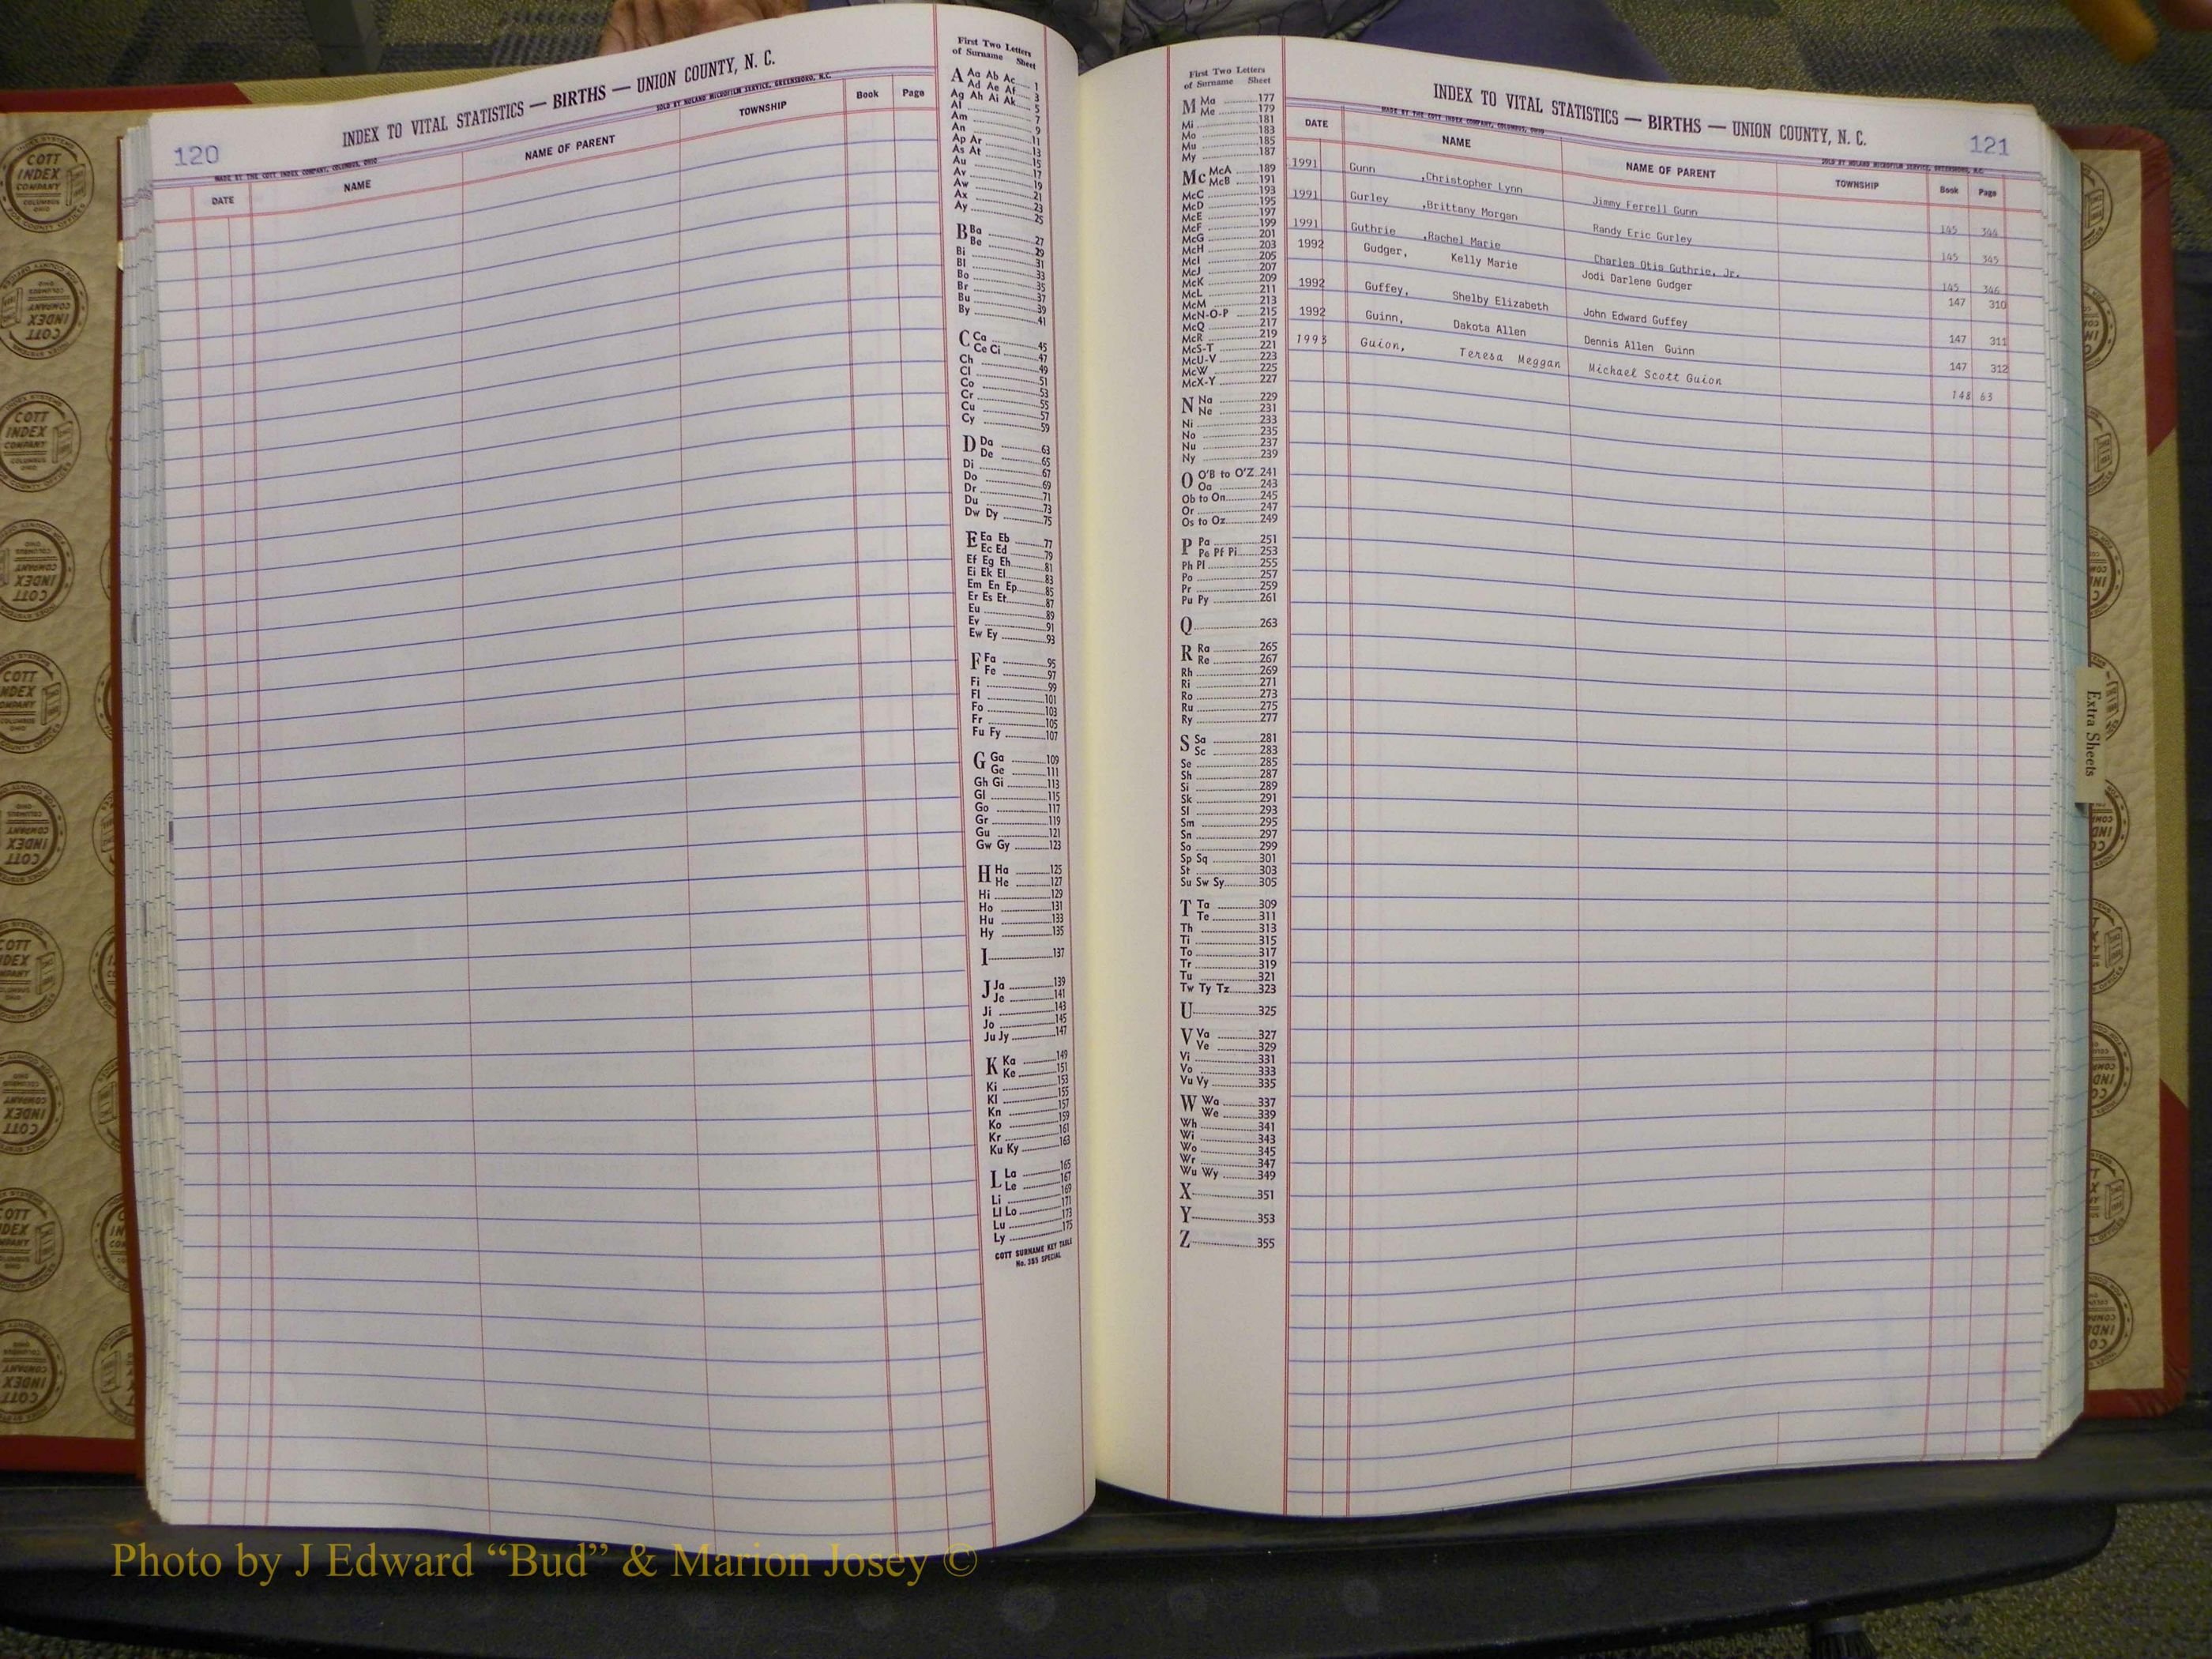 120
INDEX TO VITAL STATISTICS — BIRTHS — UNION COUNTY, N. C.
MADE BY THE COTT INDEX COMPANY, COLUMBUS, OHIO
SOLD BY NOLAND MICROFILM SERVICE, GREENSBORO, N.C.
DATE NAME NAME OF PARENT TOWNSHIP Book Page
First Two Letters
of Surname Sheet
A Aa Ab Ac 1
Ad Ae Af 3
Ag Ah Ai Ak 5
Al 7
Am 9
An 11
Ap Ar 13
As At 15
Au 17
Av 19
Aw 21
Ax 23
Ay 25
B Ba 27
Be 29
Bi 31
Bl 33
Bo 35
Br 37
Bu 39
By 41
C Ca 45
Ce Ci 47
Ch 49
Cl 51
Co 53
Cr 55
Cu 57
Cy 59
D Da 63
De 65
Di 67
Do 69
Dr 71
Du 73
Dw Dy 75
E Ea Eb 77
Ec Ed 79
Ef Eg Eh 81
Ei Ek El 83
Em En Ep 85
Er Es Et 87
Eu 89
Ev 91
Ew Ey 93
F Fa 95
Fe 97
Fi 99
Fl 101
Fo 103
Fr 105
Fu Fy 107
G Ga 109
Ge 111
Gh Gi 113
Gl 115
Go 117
Gr 119
Gu 121
Gw Gy 123
H Ha 125
He 127
Hi 129
Ho 131
Hu 133
Hy 135
I 137
J Ja 139
Je 141
Ji 143
Jo 145
Ju Jy 147
K Ka 149
Ke 151
Ki 153
Kl 155
Kn 157
Ko 159
Kr 161
Ku Ky 163
L La 165
Le 167
Li 169
Ll Lo 171
Lu 173
Ly 175
COTT SURNAME KEY TABLE
No. 355 SPECIAL
First Two Letters
of Surname Sheet
M Ma 177
Me 179
Mi 181
Mo 183
Mu 185
My 187
Mc McA 189
McB 191
McC 193
McD 195
McE 197
McF 199
McG 201
McH 203
McI 205
McJ 207
McK 209
McL 211
McM 213
McN-O-P 215
McQ 217
McR 219
McS-T 221
McU-V 223
McW 225
McX-Y 227
N Na 229
Ne 231
Ni 233
No 235
Nu 237
Ny 239
O O'B to O'Z 241
Oa 243
Ob to On 245
Or 247
Os to Oz 249
P Pa 251
Pe Pf Pi 253
Ph Pl 255
Po 257
Pr 259
Pu Py 261
Q 263
R Ra 265
Re 267
Rh 269
Ri 271
Ro 273
Ru 275
Ry 277
S Sa 281
Sc 283
Se 285
Sh 287
Si 289
Sk 291
Sl 293
Sm 295
Sn 297
So 299
Sp Sq 301
St 303
Su Sw Sy 305
T Ta 309
Te 311
Th 313
Ti 315
To 317
Tr 319
Tu 321
Tw Ty Tz 323
U 325
V Va 327
Ve 329
Vi 331
Vo 333
Vu Vy 335
W Wa 337
We 339
Wh 341
Wi 343
Wo 345
Wr 347
Wu Wy 349
X 351
Y 353
Z 355
INDEX TO VITAL STATISTICS — BIRTHS — UNION COUNTY, N. C.
121
MADE BY THE COTT INDEX COMPANY, COLUMBUS, OHIO
SOLD BY NOLAND MICROFILM SERVICE, GREENSBORO, N.C.
DATE NAME NAME OF PARENT TOWNSHIP Book Page
1991 Gunn ,Christopher Lynn Jimmy Ferrell Gunn 145 344
1991 Gurley ,Brittany Morgan Randy Eric Gurley 145 345
1991 Guthrie ,Rachel Marie Charles Otis Guthrie, Jr. 145 346
1992 Gudger, Kelly Marie Jodi Darlene Gudger 147 310
1992 Guffey, Shelby Elizabeth John Edward Guffey 147 311
1992 Guinn, Dakota Allen Dennis Allen Guinn 147 312
1993 Guion, Teresa Meggan Michael Scott Guion 148 63
Extra Sheets
COTT
INDEX
COMPANY
COLUMBUS
OHIO
Photo by J Edward “Bud” & Marion Josey ©